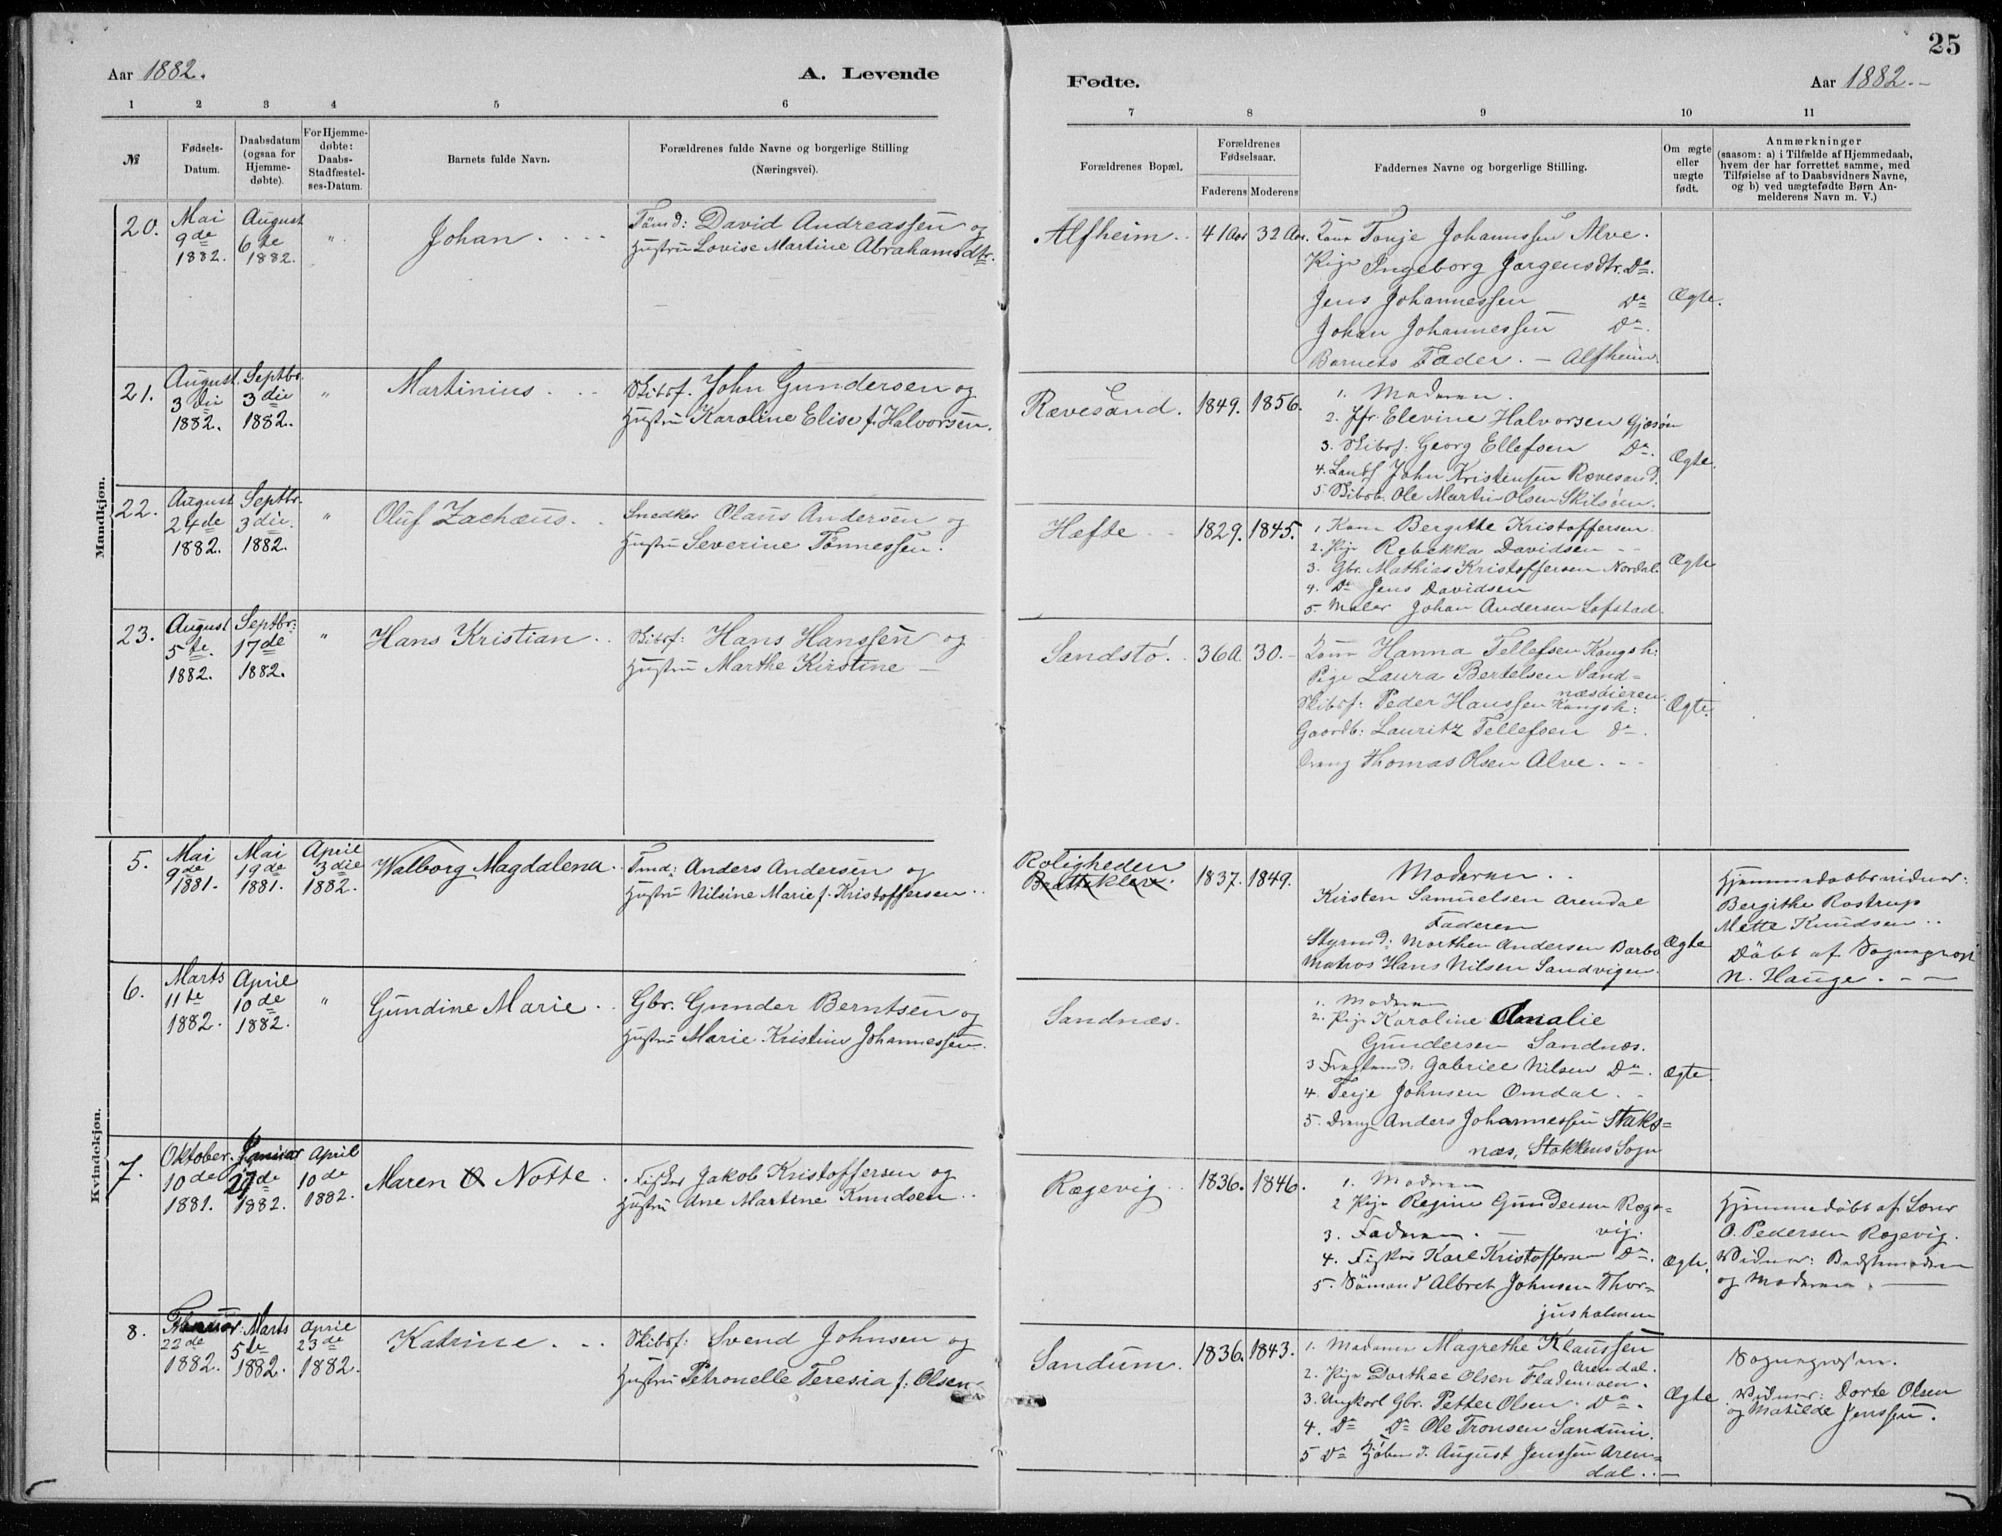 25
Aar 1882.
A. Levende
Fødte.
Aar 1882.
1 2 3 4 5 6 7 8 9 10 11
№
Fødsels-
Datum.
Daabsdatum
(ogsaa for
Hjemme-
døbte).
For Hjemme-
døbte:
Daabs-
Stadfæstel-
ses-Datum.
Barnets fulde Navn.
Forældrenes fulde Navne og borgerlige Stilling
(Næringsvei).
Forældrenes Bopæl.
Forældrenes
Fødselsaar.
Faderens Moderens
Faddernes Navne og borgerlige Stilling.
Om ægte
eller
uægte
født.
Anmærkninger
(saasom: a) i Tilfælde af Hjemmedaab,
hvem der har forrettet samme, med
Tilføielse af to Daabsvidners Navne,
og b) ved uægtefødte Børn An-
melderens Navn m. V.)
Mandkjøn.
20.
Mai
9de
1882.
August
6te
1882.
"
Johan
Tømd: David Andreassen og
Hustru Lovise Martine Abrahamsdtr.
Alfheim
41 Aar 32 Aar.
Kone Tonje Johannssen Alve.
Pige Ingeborg Jørgensdtr. Do.
Jens Johannessen Do
Johan Johannessen Do.
Barnets Fader. - Alfheim.
Ægte.
21.
August
3die
1882.
Septbr.
3die
1882.
"
Martinius
Skibsf. John Gundersen og
Hustru Karoline Elise f. Halvorsen.
Rævesand.
1849. 1856.
1. Moderen.
2. Jfr Elevine Halvorsen Gjæsøn
3. Skibsf. Georg Ellefsen Do.
4. John Kristensen Rævesand.
5. Ole Martin Olsen Skilsøen.
Ægte.
22.
August
24de
1882.
Septbr.
3die
1882.
"
Oluf Zachæus
Snedker Olaus Andersen og
Hustru Severine Tønnessen.
Hæfte
1829. 1845.
1. Kone Bergitte Kristoffersen
2. Pige Rebekka Davidsen
3. Gbr. Mathias Kristoffersen Nordal.
4. Do Jens Davidsen
5. Maler Johan Andersen Lofstad.
Ægte
23.
August
5te
1882.
Septbr:
17de
1882.
"
Hans Kristian
Skibsf: Hans Hanssen og
Hustru Marthe Kirstine
Sandstø.
36 A. 30.
Kone Hanna Tellefsen Kongsh:
Pige Laura Bertelsen Sand=
næsøieren.
Skibsf: Peder Hanssen Kongsh:
Gaardb: Lauritz Tellefsen do.
Dreng Thomas Olsen Alve.
Ægte.
Kvindekjøn.
5.
Mai
9de
1881.
Mai
19de
1881.
April
3die
1882.
Walborg Magdalena
Tmd: Anders Andersen og
Hustru Nilsine Marie f. Kristoffersen
Roligheden
Brattekleiv.
1837. 1849.
Moderen
Kirsten Samuelsen Arendal
Faderen
Styrmd: Morthen Andersen Barbo
Matros Hans Nilsen Sandvigen.
Ægte
Hjemmedøbsvidner:
Bergithe Rostrup
Mette Knudsen
Døbt af Sognepræst
N. Hauge.
6.
Marts
11te
1882.
April
10de
1882.
"
Gundine Marie
Gbr. Gunder Berntsen og
Hustru Marie Kristine Johannessen.
Sandnæs.
1. Moderen
2. Pige Karoline Amalie
Gundersen Sandnæs.
3 Gabriel Nilsen Do.
4. Terje Johnsen Omdal.
5. Dreng Anders Johannessen Staks=
næs, Stokkens Sogn
Ægte.
7.
Oktober
10de
1881.
Januar
27de
1882.
April
10de
1882.
Maren O Notte
Fisker Jakob Kristoffersen og
Hustru Ane Martine Knudsen
Rægevig
1836. 1846.
1. Moderen
2 Pige Regine Gundersen Ræge=
vig.
3. Faderen.
4. Fisker Karl Kristoffersen Do.
5. Sømand Albret Johnsen Thor=
jusholmen
Ægte.
Hjemmedøbt af Lærer
O. Pedersen Rægevig.
Vidner: Bedstemoderen
og Moderen.
8.
Februar:
22de
1882.
Marts
5te
1882.
April
23de
1882.
Katrine
Skibsf: Svend Johnsen og
Hustru Petronelle Teresia f: Olsen
Sandum.
1836. 1843.
1. Madame Magrethe Klaussen
Arendal.
2. Pige Dorthee Olsen Flademoen.
3. Ungkarl Gbr. Petter Olsen. Do.
4. Do Do Ole Tronsen Sandum.
5 Do Kjøbmd. August Jenssen Aren=
dal.
Ægte
Sognepresten.
Vidner: Dorte Olsen
og Matilde Jenssen.